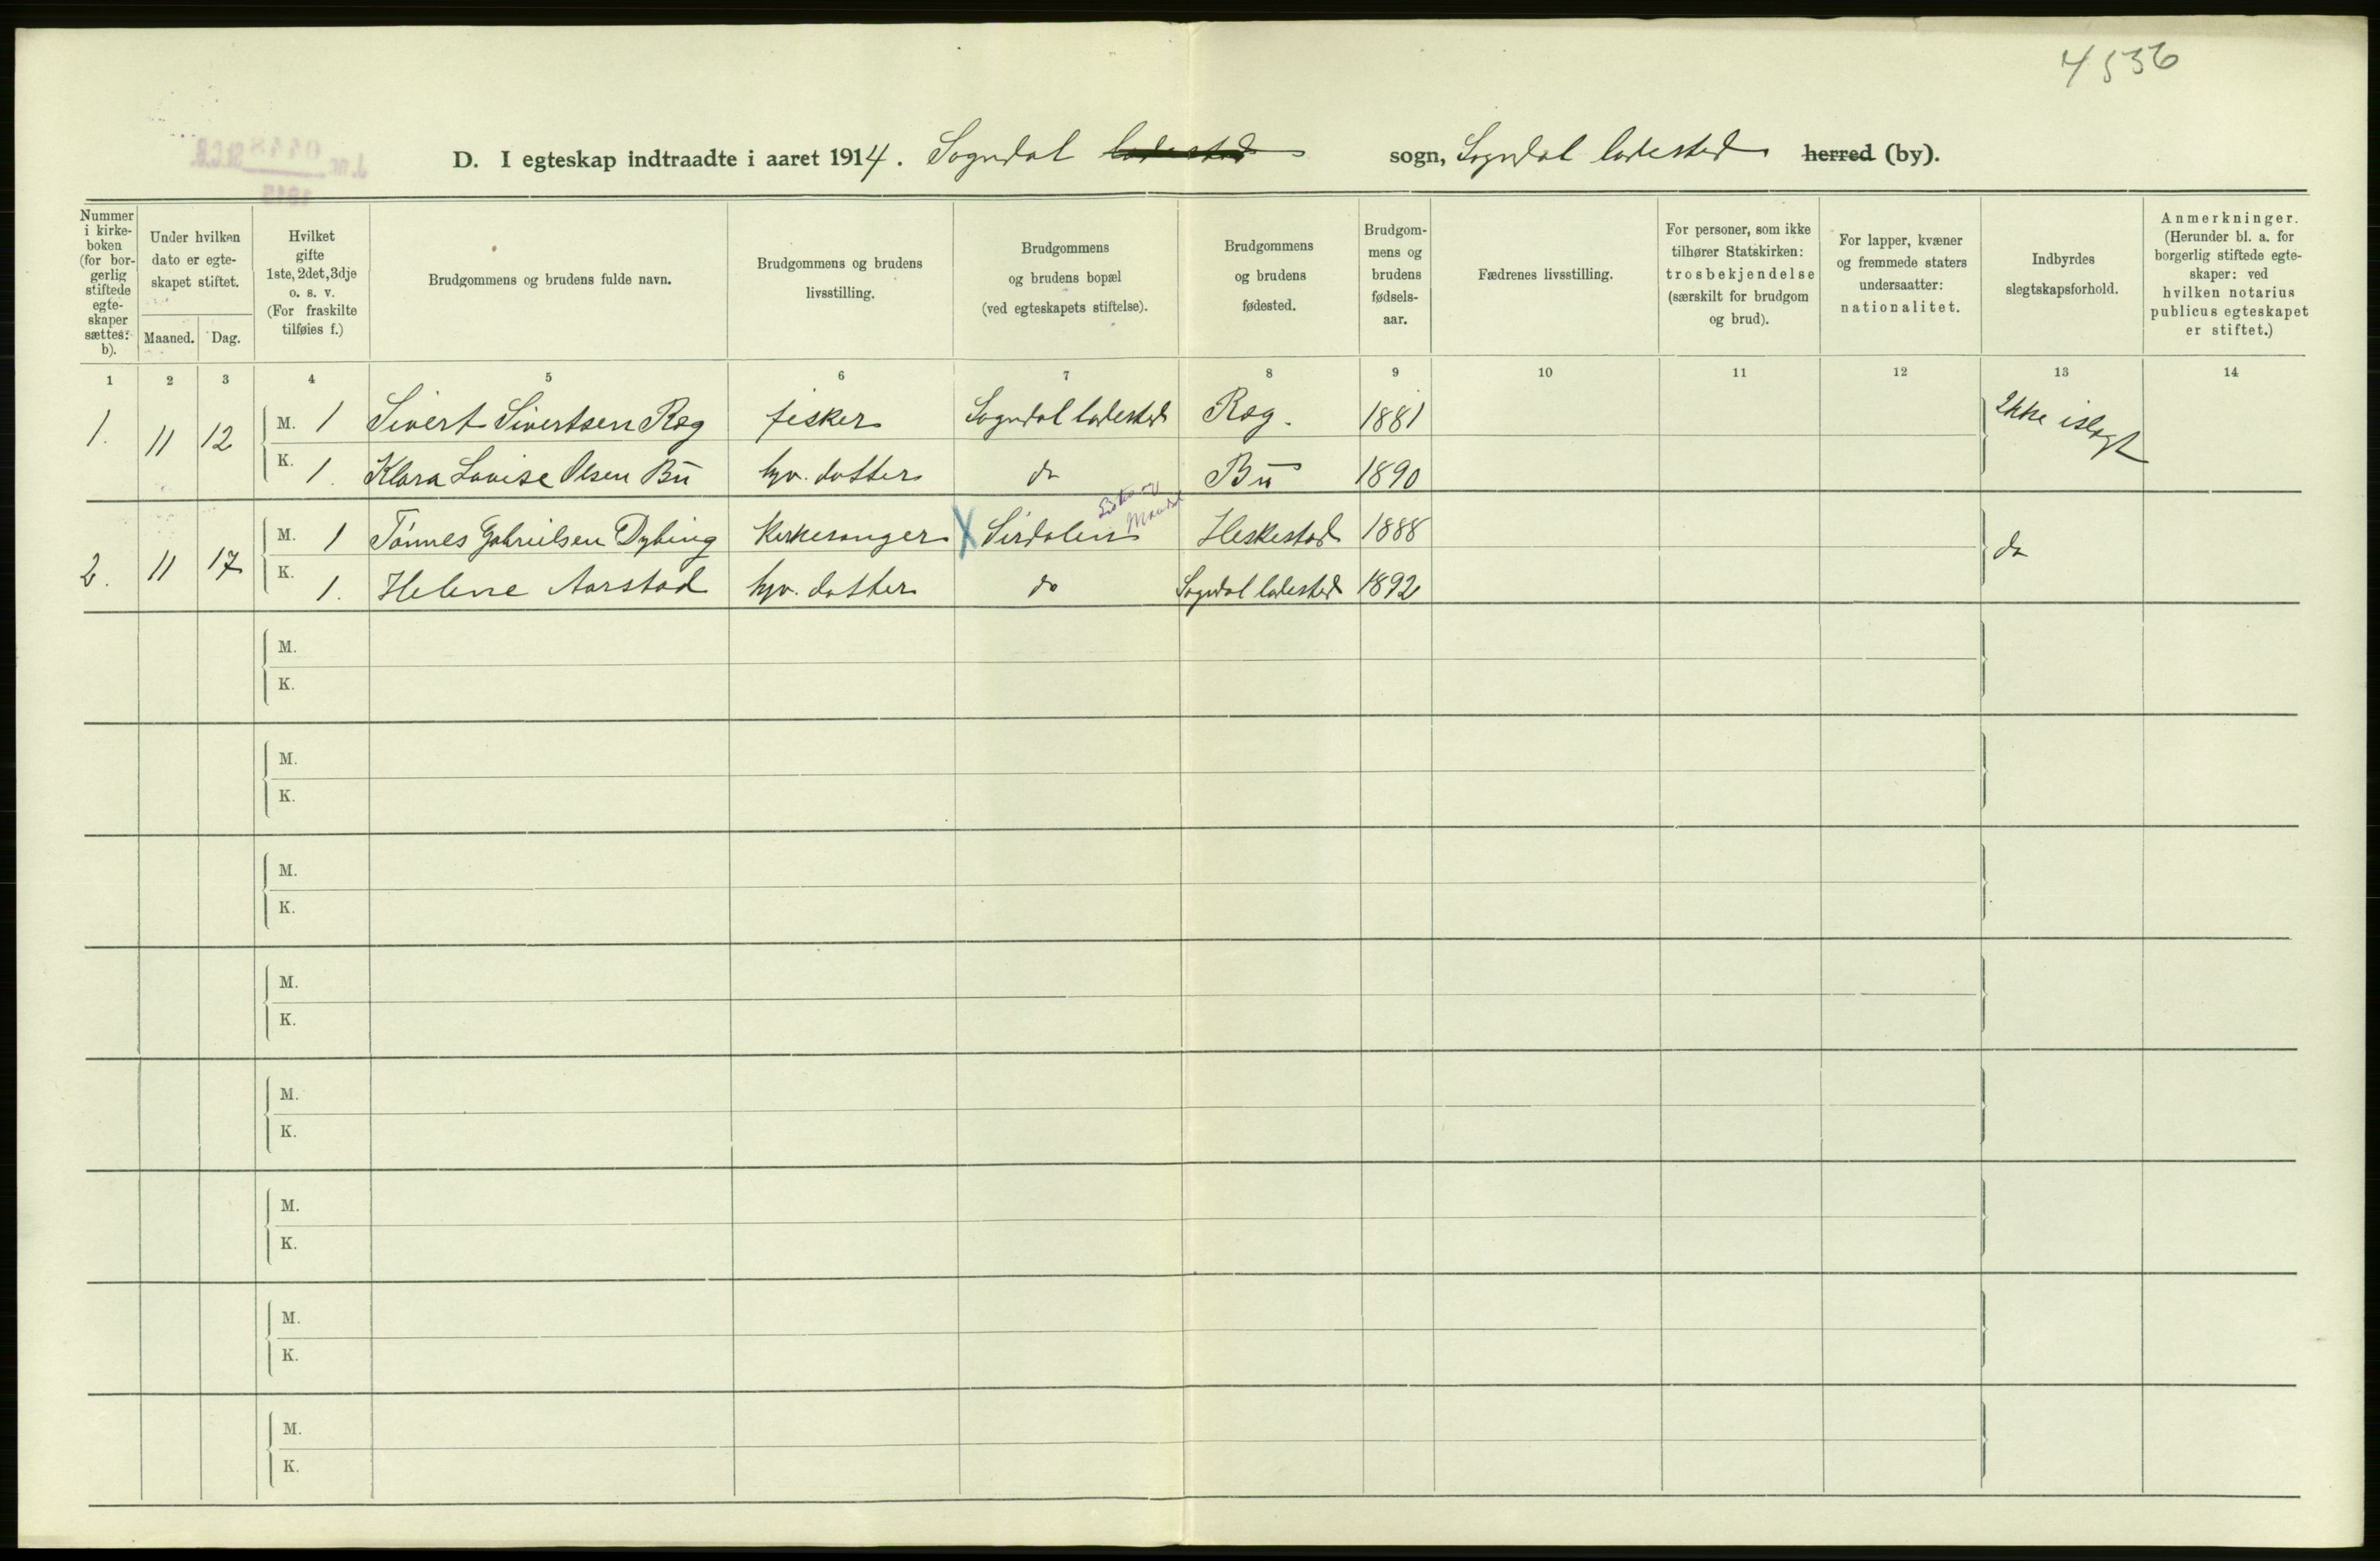 4536
D. I egteskap indtraadte i aaret 1914. Sogndal ladested sogn, Sogndal ladested herred (by).
Nummer i kirkeboken (for borgerlig stiftede egteskaper sættes: b).
Under hvilken dato er egteskapet stiftet.
Maaned. Dag.
Hvilket gifte 1ste, 2det, 3dje o. s. v. (For fraskilte tilføies f.)
Brudgommens og brudens fulde navn.
Brudgommens og brudens livsstilling.
Brudgommens og brudens bopæl (ved egteskapets stiftelse).
Brudgommens og brudens fødested.
Brudgommens og brudens fødselsaar.
Fædrenes livsstilling.
For personer, som ikke tilhører Statskirken: trosbekjendelse (særskilt for brudgom og brud).
For lapper, kvæner og fremmede staters undersaatter: nationalitet.
Indbyrdes slegtskapsforhold.
Anmerkninger. (Herunder bl. a. for borgerlig stiftede egteskaper: ved hvilken notarius publicus egteskapet er stiftet.)
1 2 3 4 5 6 7 8 9 10 11 12 13 14
1. 11 12 M. 1 Sivert Sivertsen Ræg fisker Sogndal ladested Ræg. 1881 Ikke islegt
K. 1. Klara Lovise Olsen Bu hjv. datter do Bu 1890
Lister og Mandal
2. 11 17 M. 1 Tönnes Gabrielsen Dybing Kirkesanger X Sirdalen Heskestad 1888 do
K. 1. Helene Aarstad hjv. datter do Sogndal ladested 1892
M.
K.
M.
K.
M.
K.
M.
K.
M.
K.
M.
K.
M.
K.
M.
K.